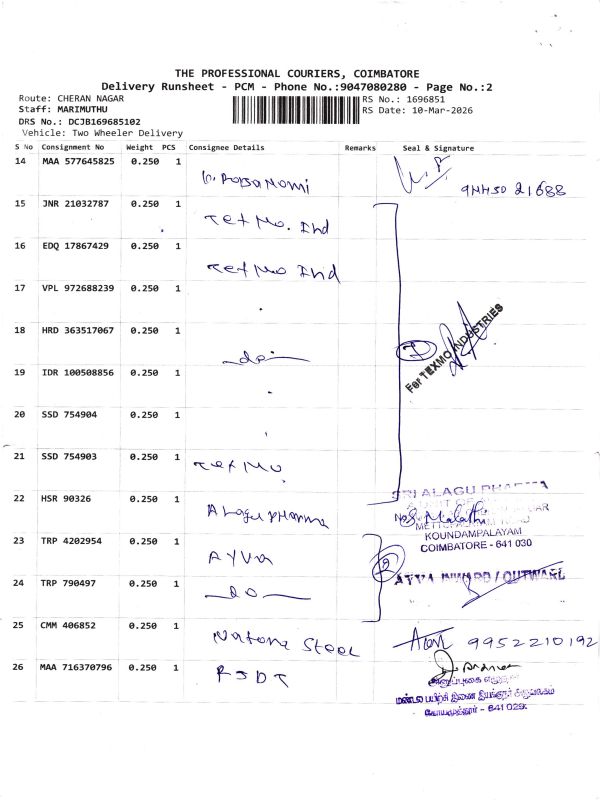 THE PROFESSIONAL COURIERS, COIMBATORE
Delivery Runsheet - PCM - Phone No.:9047080280 - Page No.:2
Route: CHERAN NAGAR
Staff: MARIMUTHU
DRS No.: DCJB169685102
Vehicle: Two Wheeler Delivery
RS No.: 1696851
RS Date: 10-Mar-2026
S No Consignment No Weight PCS Consignee Details Remarks Seal & Signature
14 MAA 577645825 0.250 1
15 JNR 21032787 0.250 1 Texmo. Ind
16 EDQ 17867429 0.250 1 Texmo Ind
17 VPL 972688239 0.250 1
18 HRD 363517067 0.250 1 do
19 IDR 100508856 0.250 1
For TEXMO INDUSTRIES
20 SSD 754904 0.250 1
21 SSD 754903 0.250 1 Texmo
22 HSR 90326 0.250 1 Alagu pharma
SRI ALAGU PHARMA
KOUNDAMPALAYAM
COIMBATORE - 641 030
23 TRP 4202954 0.250 1 AYVA
24 TRP 790497 0.250 1 do
INWARD / OUTWARD
25 CMM 406852 0.250 1 9952210192
26 MAA 716370796 0.250 1 RJDT
மண்டல பயிற்சி இணை இயக்குநர் அலுவலகம்
கோயமுத்தூர் - 641 029.